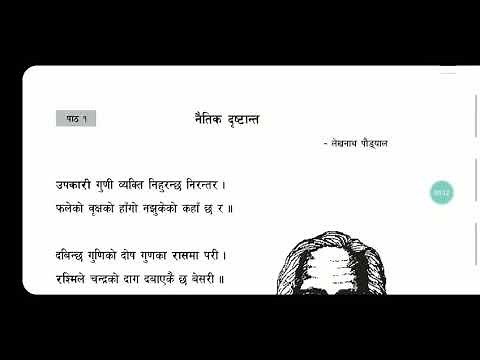 पाठ १
नैतिक दृष्टान्त
- लेखनाथ पौड्याल
उपकारी गुणी व्यक्ति निहुरन्छ निरन्तर ।
फलेको वृक्षको हाँगो नझुकेको कहाँ छ र ॥
दबिन्छ गुणिको दोष गुणका रासमा परी ।
रश्मिले चन्द्रको दाग दबाएकै छ बेसरी ॥